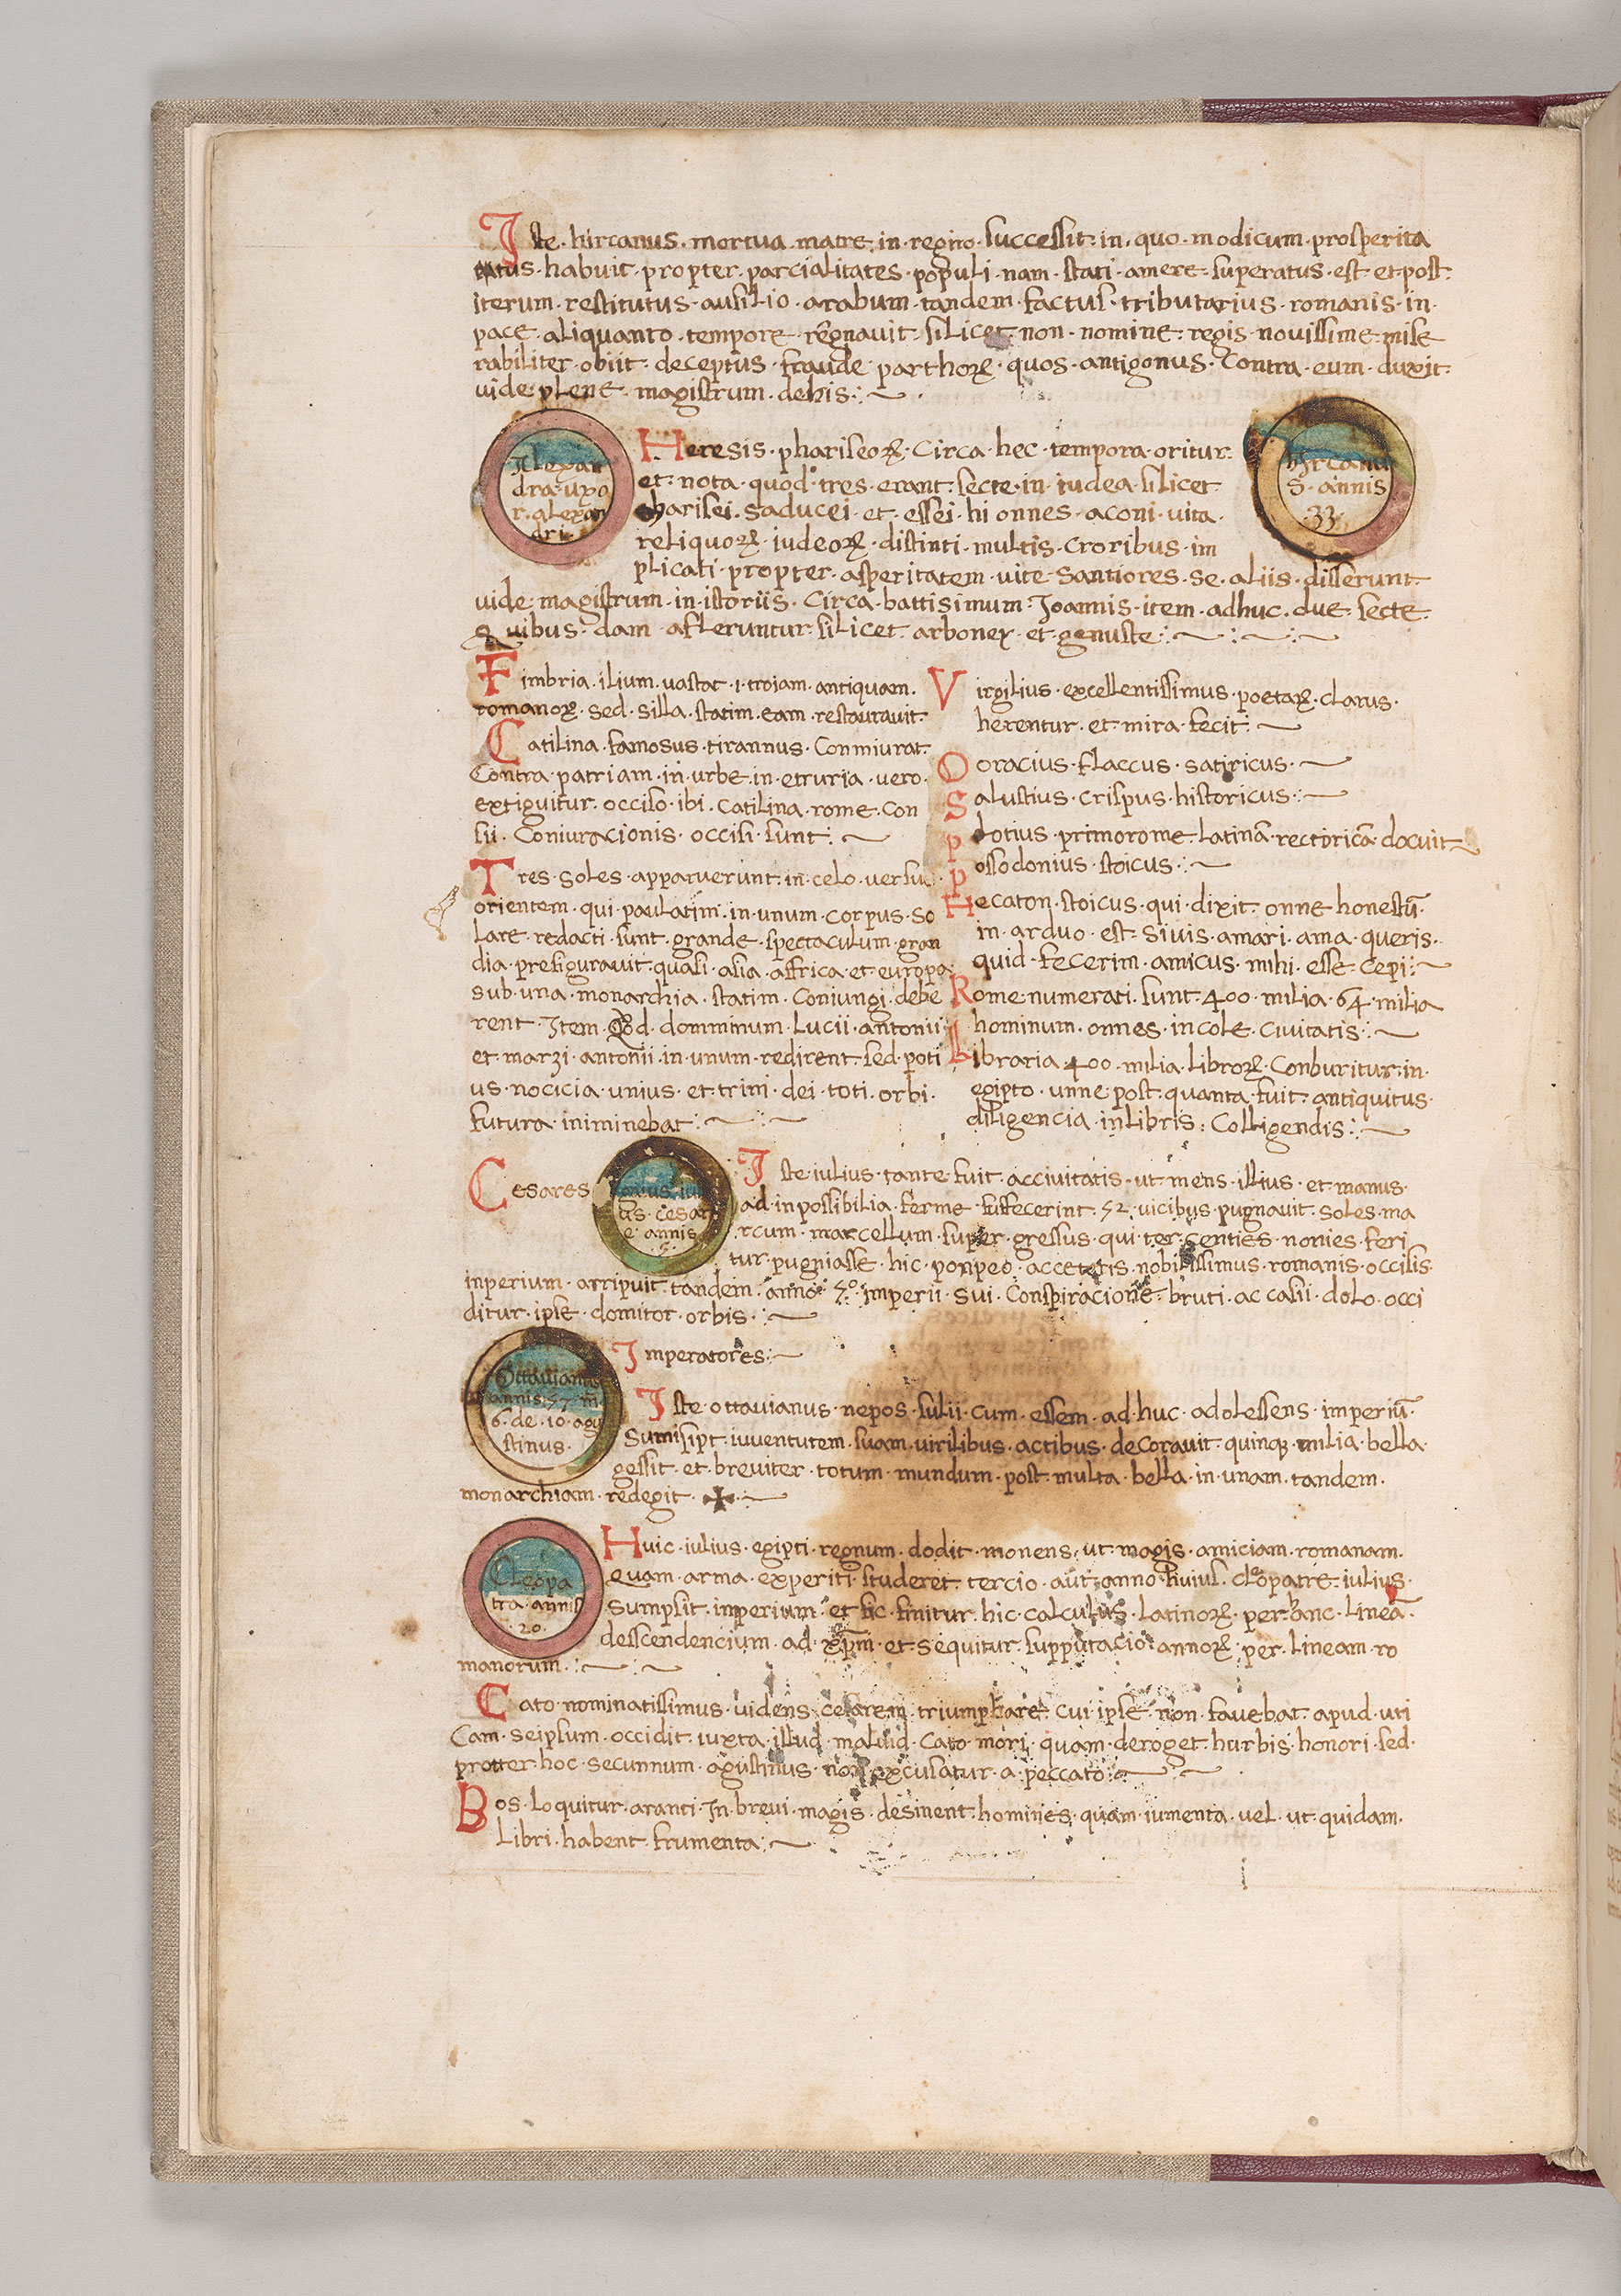 Iste · hircanus · mortua · matre · in · regno · successit · in · quo · modicum · prosperita
tus · habuit · propter · parcialitates · populi · nam · stati · amere · superatus · est · et · post ·
iterum · restitutus · ausilio · arabum · tandem · factus · tributarius · romanis · in ·
pace · aliquanto · tempore · regnauit · silicet · non · nomine · regis · nouissime · mise
rabiliter · obiit · deceptus · fraude · parthoꝝ · quos · antigonus · contra · eum · duxit ·
uide · plene · magistrum · dehis ·
Alexan
dra · uxo
r · alexan
dri ·
Heresis · phariseoꝝ · circa · hec · tempora · oritur ·
et · nota · quod · tres · erant · secte · in · iudea · silicet
pharisei · saducei · et · essei · hi onnes · aconi · uita ·
reliquoꝝ · iudeoꝝ · distinti · multis · croribus · im
plicati · propter · asperitatem · uite · santiores · se · aliis · disserunt ·
uide · magistrum · in · istoriis · Circa · battisimum · Joannis · item · adhuc · due · secte ·
Quibus · dam · asseruntur · silicet · arbonex · et · genuste ·
hircanu
s · annis
· 33 ·
Fimbria · ilium · uastat · i · troiam · antiquam ·
romanoꝝ · sed · silla · statim · eam · restaurauit ·
Catilina · famosus · tirannus · conmiurat ·
Contra · patriam · in · urbe · in · etruria · uero ·
extiguitur · occiso · ibi · catilina · rome · con
sii · coniuracionis · occisi · sunt ·
Tres · soles · apparuerunt · in · celo · uersu
orientem · qui · paulatim · in · unum · corpus · so
lare · redacti · sunt · grande · spectaculum · gran
dia · prefigurauit · quasi · asia · affrica · et · europa ·
sub · una · monarchia · statim · coniungi · debe
rent · Item · Qd · domminum · Lucii · antonii
et · marzi · antonii · in · unum · redirent · sed · poti
us · nocicia · unius · et · trini · dei · toti · orbi ·
futura · iniminebat ·
Virgilius · excellentissimus · poetaꝝ · clarus ·
herentur · et · mira · fecit ·
Ooracius · flaccus · satiricus ·
Salustius · crispus · historicus ·
plotius · primorome · latinā · rectoricā · docuit
possodonius · stoicus ·
Hecaton · stoicus · qui · dixit · onne · honestū ·
in · arduo · est · siuis · amari · ama · queris ·
quid · fecerim · amicus · mihi · esse · cepi ·
Rome numerati · sunt · 400 · milia · 64 · milia
hominum · onnes · incole · ciuitatis ·
Libraria · 400 · milia · libroꝝ · conburitur · in ·
egipto · unne post · quanta · fuit · antiquitus ·
diligencia · in libris · colligendis ·
Cesares
ius · cesar
e · annis
· 5 ·
Iste · iulius · tante · fuit · acciuitatis · ut · mens · illius · et · manus ·
ad · inpossibilia · ferme · suffecerint · 52 · uicibus · pugnauit · soles · ma
rcum · marcellum · super · gressus · qui · ter · centies · nonies · feri
tur · pugniasse · hic · ponpeo · acceteris · nobilissimus · romanis · occisis ·
inperium · arripuit · tandem · anno · 5º · imperii · sui · Conspiracione · bruti · ac casii · dolo · occi
ditur · ipse · domitor · orbis ·
Ottauianus
annis · 57 · m̄ ·
6 · de · 10 · agu
stinus ·
Imperatores ·
Iste · ottauianus · nepos · iulii · cum · essem · ad · huc · adolessens · imperiū ·
Sumisipt · iuuentutem · suam · uirilibus · actibus · decorauit · quinqꝫ · milia · bella ·
gessit · et · breuiter · totum · mundum · post · multa · bella · in · unam · tandem ·
monarchiam · redegit · ✠ ·
Cleopa
tra · annis
· 20 ·
Huic · iulius · egipti · regnum · dodit · monens · ut · magis · amiciam · romanam ·
quam · arma · experiti · studeret · tercio · aut · anno · huius · cleopatre · iulius ·
sumpsit · inperium · et · sic · finitur · hic · calculus · latinoꝝ · per · hanc · lineā ·
desscendencium · ad · xp̄m · et · sequitur · supputacio · annoꝝ · per · lineam · ro
manorum ·
Cato · nominatissimus · uidens · cesarem · triumphare · cui · ipse · non · fauebat · apud · uti
cam · seipsum · occidit · iuxta · illud · maluid · cato · mori · quam · deroget · hurbis · honori · sed ·
protter · hoc · secunnum · agustinus · non · excusatur · a · peccato ·
Bos · loquitur · aranti · In · breui · magis · desinent · homines · quam · iumenta · uel · ut · quidam ·
Libri · habent · frumenta ·